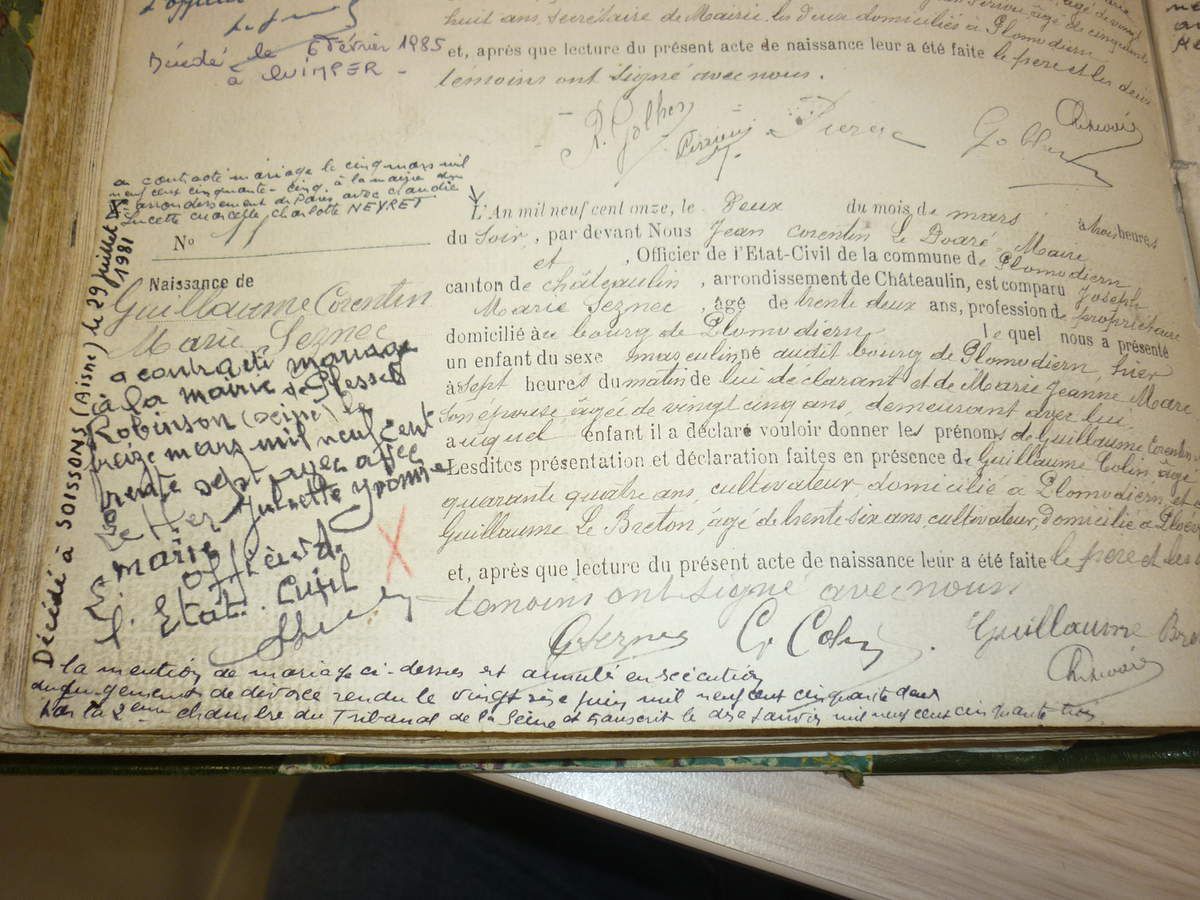 l'officier
Décédé le 6 Février 1985
à QUIMPER -
âgé de cinquante
huit ans, secrétaire de Mairie, les deux domiciliés à Plomodiern
et, après que lecture du présent acte de naissance leur a été faite le père et les deux
témoins ont signé avec nous.
a contracté mariage le cinq mars mil
neuf cent cinquante-cinq à la mairie du
arrondissement de Paris avec Claudie
Lucette Marcelle Charlotte NEYRET
N°
Naissance de
Guillaume Corentin
Marie Seznec
a contracté mariage
à la mairie de Plessis
Robinson (Seine) le
treize mars mil neuf cent
trente sept avec
Juliette Yvonne
Marie
L'officier de
l'Etat Civil
Décédé à SOISSONS (Aisne) le 29 juillet 1981
L'An mil neuf cent onze, le deux du mois de mars à trois heures
du soir, par devant Nous Jean Corentin Le Doaré Maire
et , Officier de l'Etat-Civil de la commune de Plomodiern
canton de Châteaulin , arrondissement de Châteaulin, est comparu Joseph
Marie Seznec , âgé de trente deux ans, profession de propriétaire
domicilié à ce bourg de Plomodiern le quel nous a présenté
un enfant du sexe masculin né audit bourg de Plomodiern, hier
à sept heures du matin de lui déclarant et de Marie Jeanne Marc
son épouse âgée de vingt cinq ans, demeurant avec lui
auquel enfant il a déclaré vouloir donner les prénoms de Guillaume Corentin
Lesdites présentation et déclaration faites en présence de Guillaume Colin âgé
quarante quatre ans, cultivateur domicilié à Plomodiern et
Guillaume Le Breton, âgé de trente six ans cultivateur, domicilié à
et, après que lecture du présent acte de naissance leur a été faite le père et les
témoins ont signé avec nous
J Seznec G Colin Guillaume
la mention de mariage ci-dessus est annulée en exécution
du jugement de divorce rendu le vingt six juin mil neuf cent cinquante deux
par la 2ème chambre du Tribunal de la Seine et transcrit le dix janvier mil neuf cent cinquante trois.